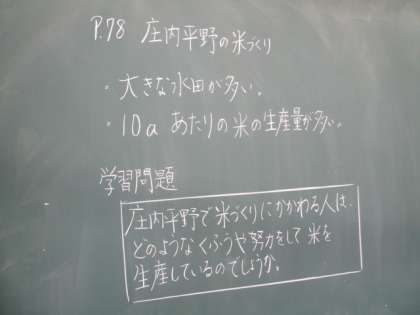 P.78 庄内平野の米づくり
・大きな水田が多い。
・10a あたりの米の生産量が多い。
学習問題
庄内平野で米づくりにかかわる人は、
どのようなくふうや努力をして 米を
生産しているのでしょうか。